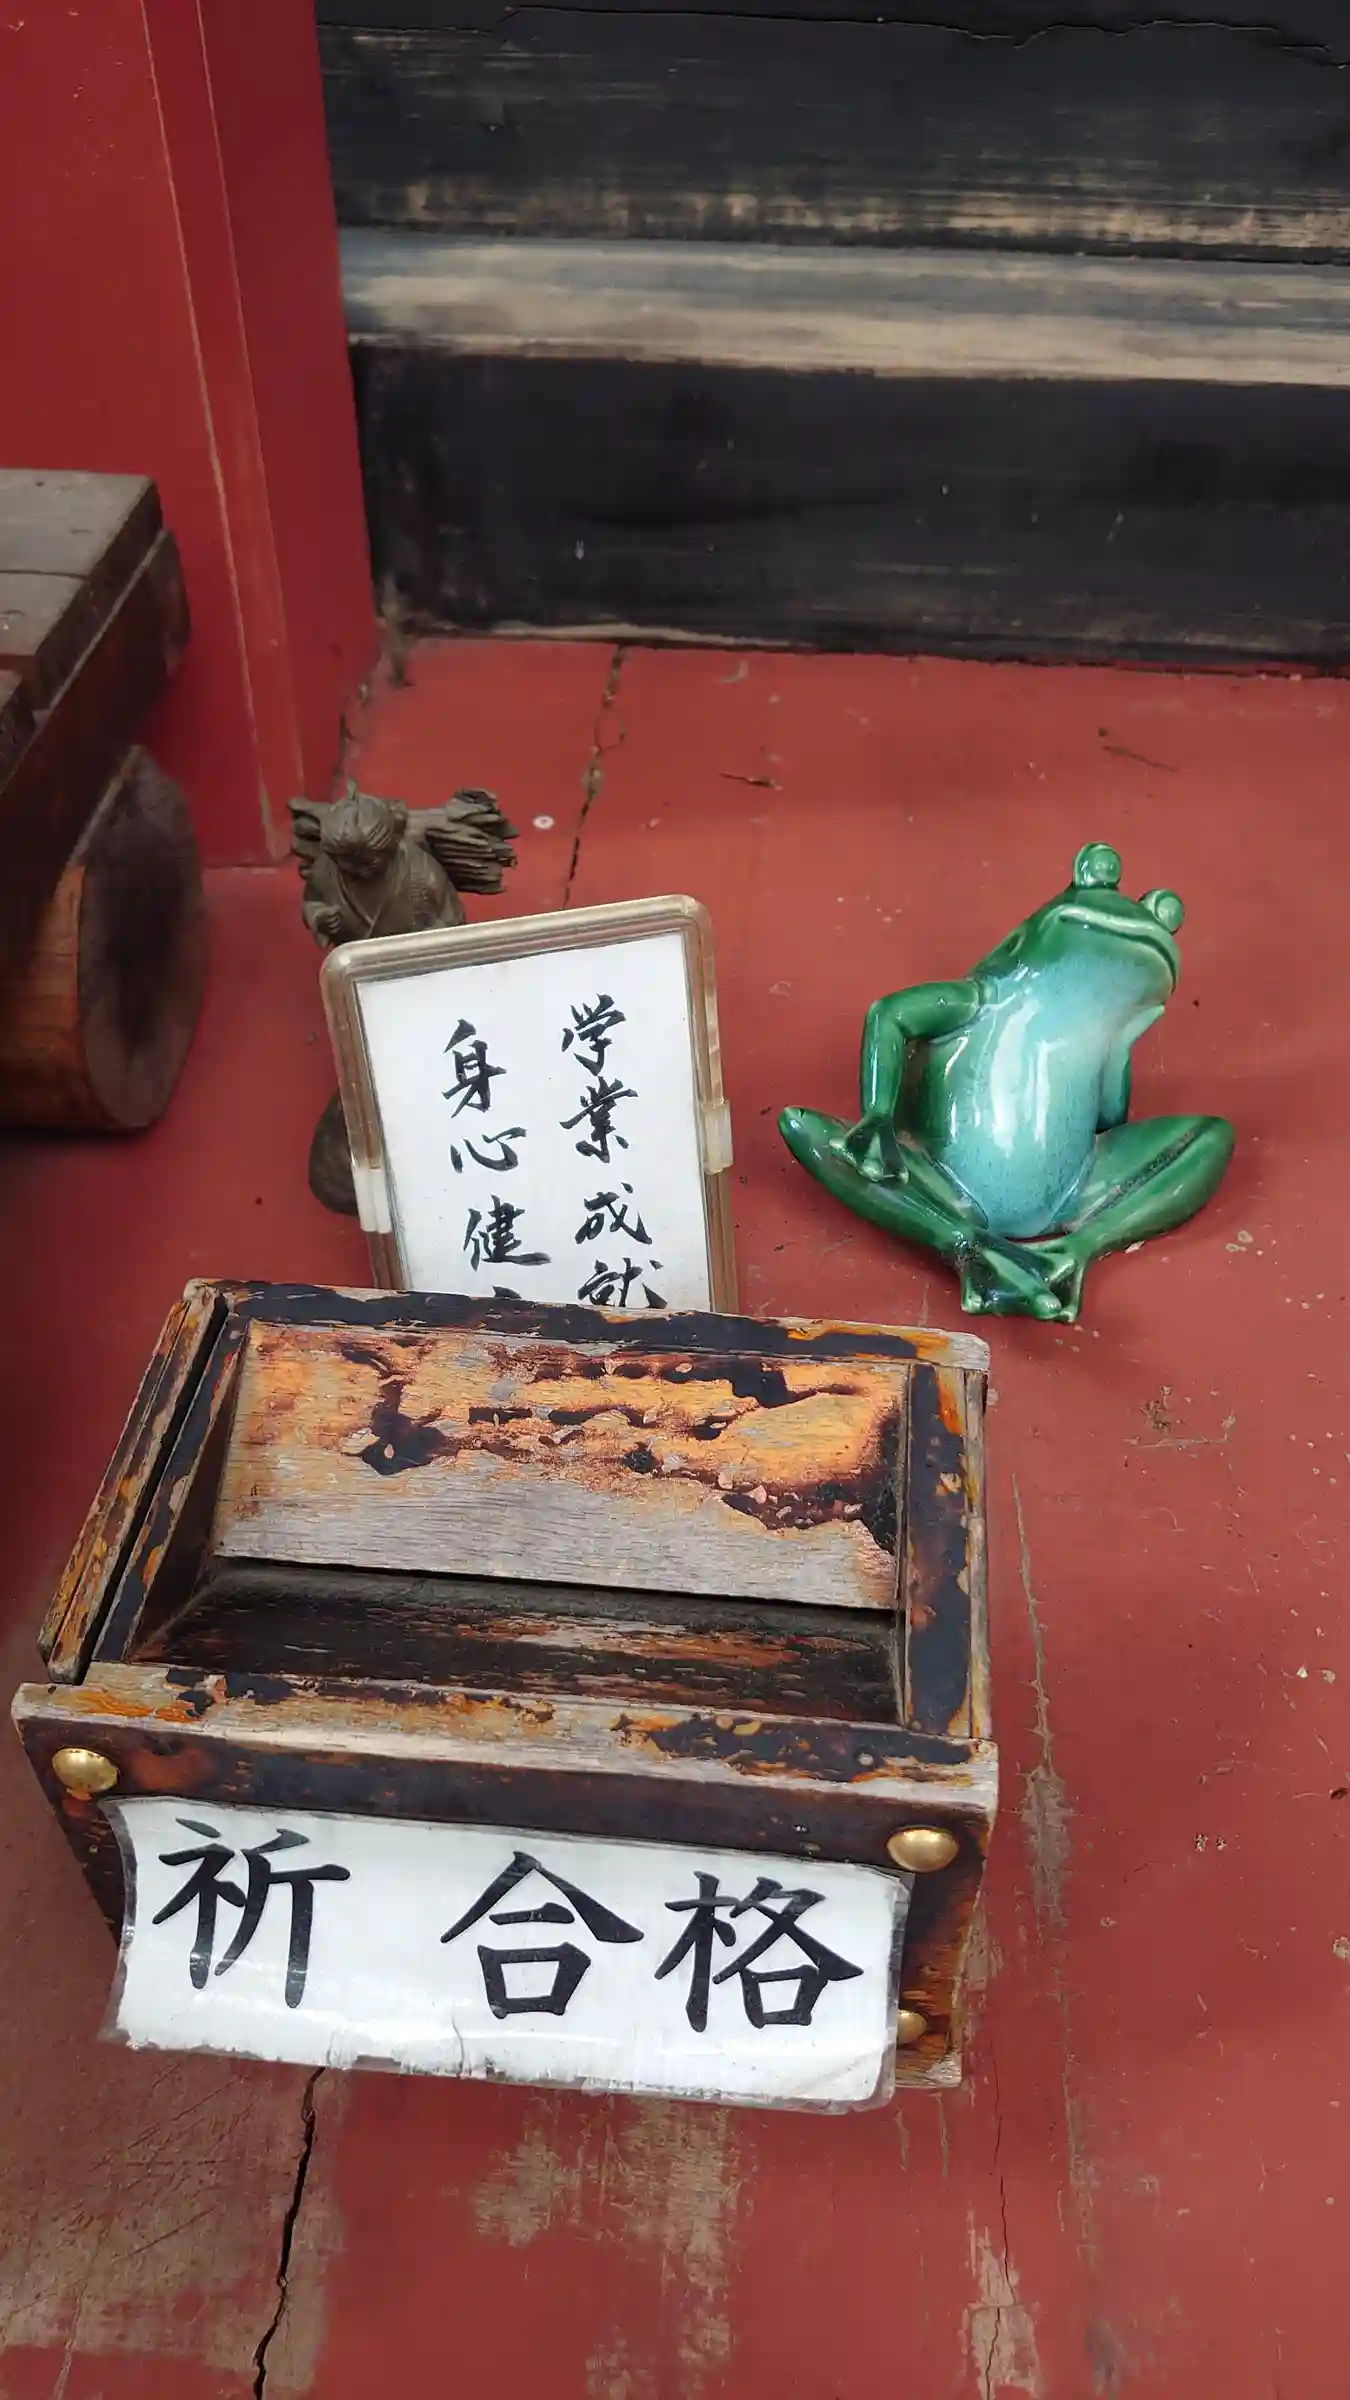 学業成就
身心健
祈 合格